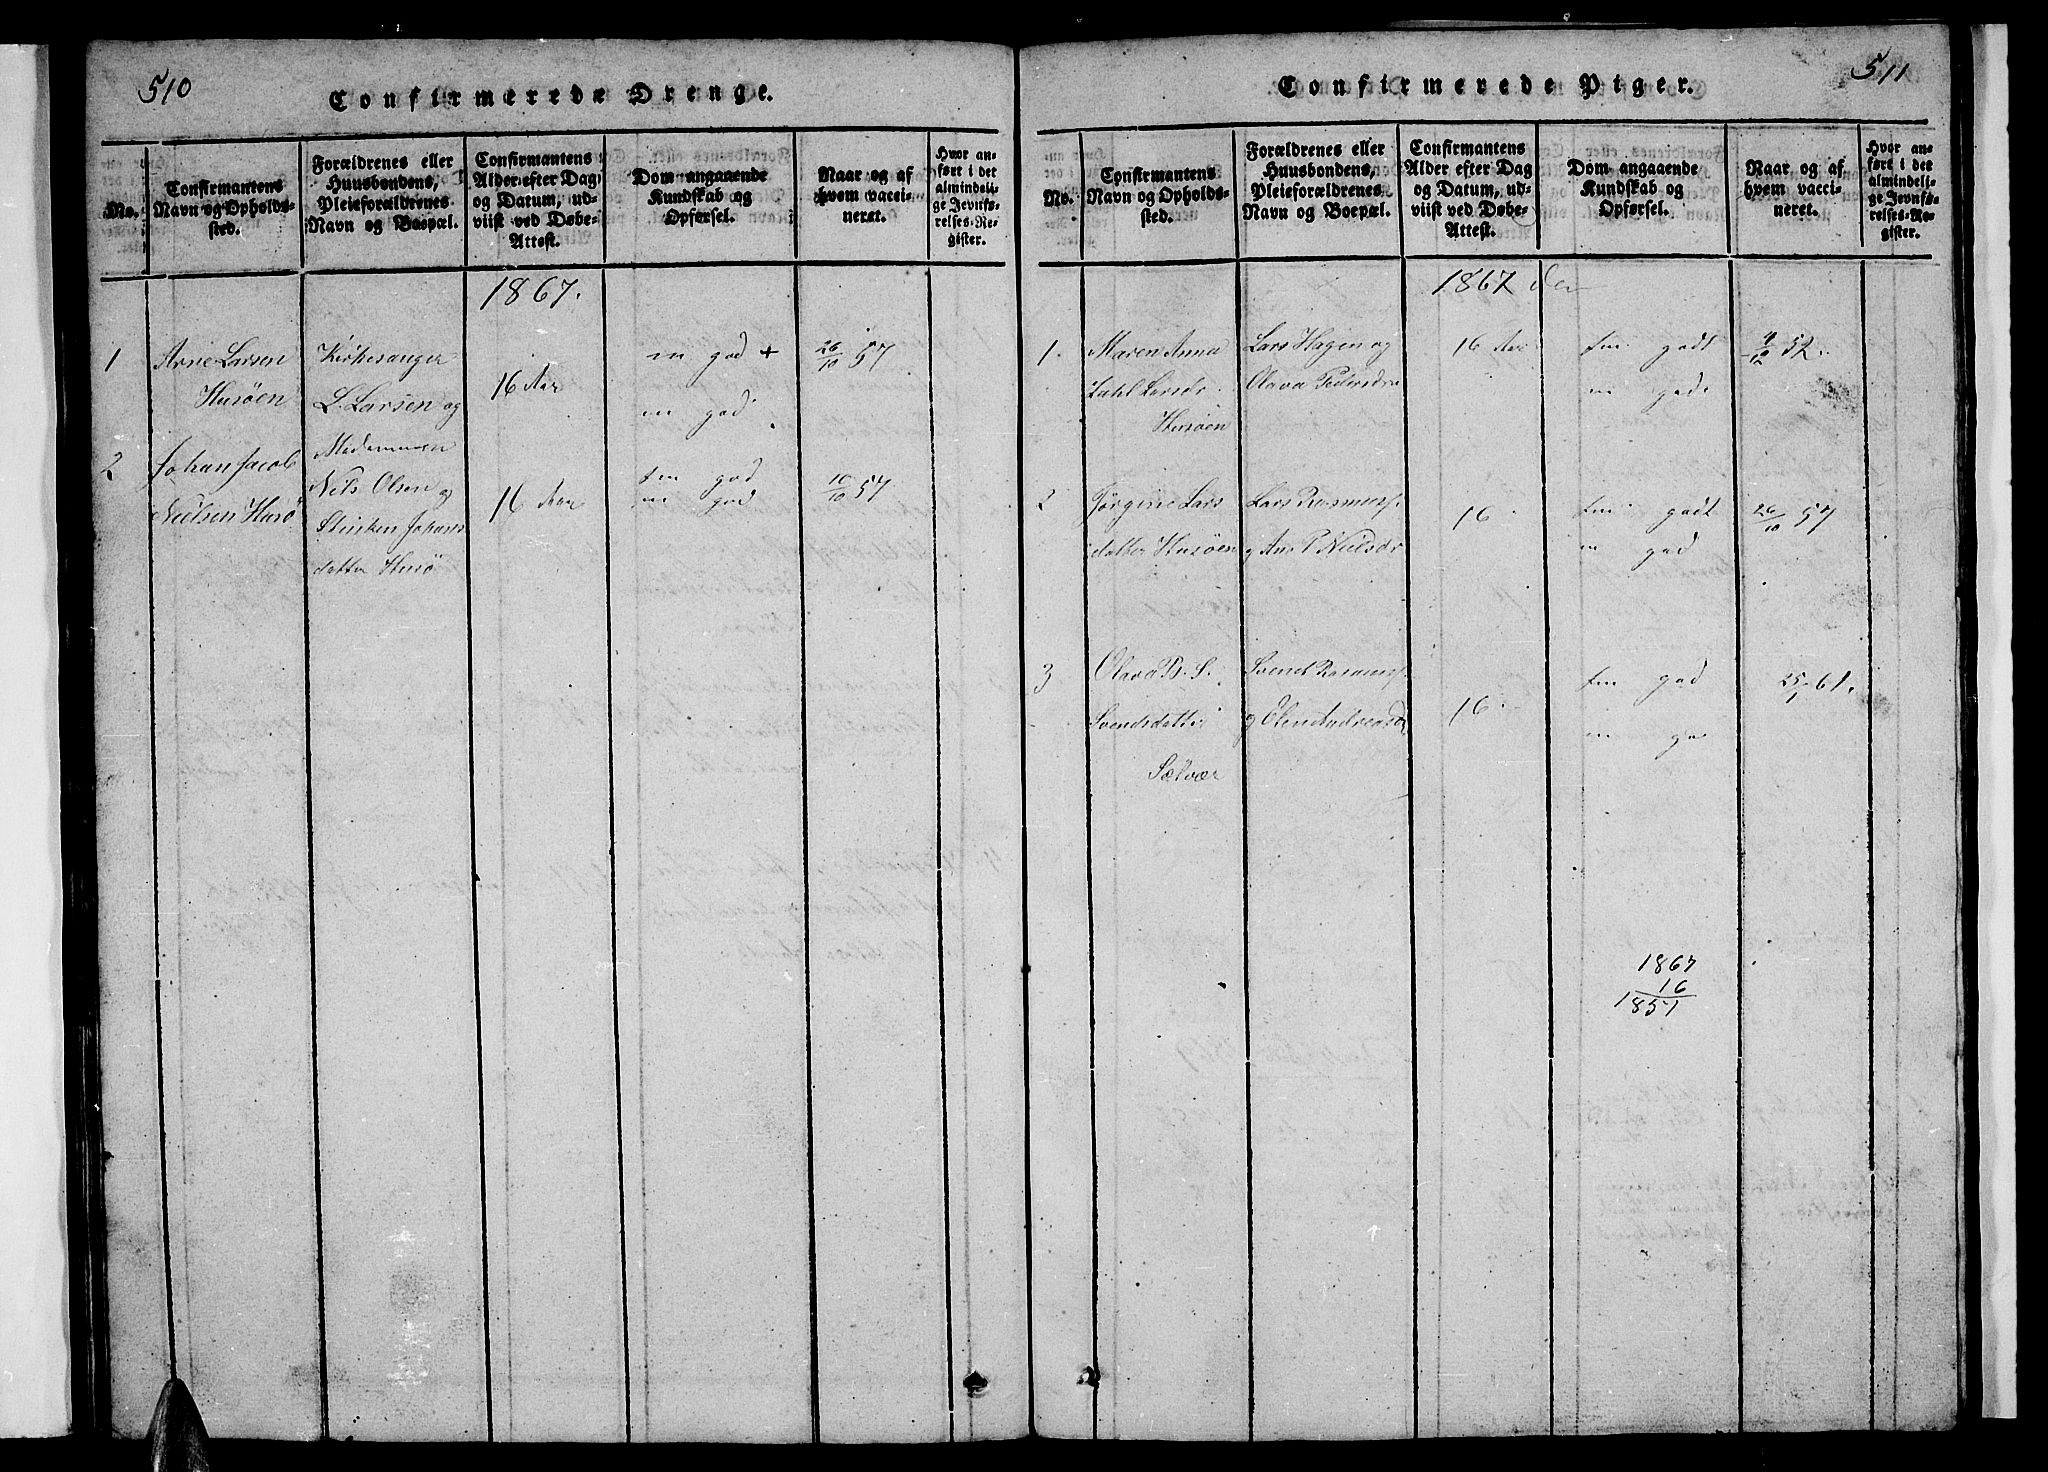 510
Confirmerede Drenge.
No.
Confirmantens
Navn og Opholds-
sted.
Forældrenes eller
Huusbondens,
Pleieforældrenes
Navn og Boepæl.
Confirmantens
Alder efter Dag
og Datum, ud-
viist ved Døbe-
Attest.
Dom angaaende
Kundskab og
Opførsel.
Naar og af
hvem vacci-
neret.
Hvor an-
ført i det
almindeli-
ge Jevnfø-
relses-Re-
gister.
1867.
1
Arne Larsen
Husøen
Kirkesanger
L. Larsen og
Madammen
16 Aar
m god +
m god
26/10 57
2
Johan Jacob
Nielsen Husø
Nils Olsen og
Stinken Johans
datter Husø
16 Aar
tm god
m god
10/10 57
511
Confirmerede Piger.
No.
Confirmantens
Navn og Opholds-
sted.
Forældrenes eller
Huusbondens,
Pleieforældrenes
Navn og Boepæl.
Confirmantens
Alder efter Dag
og Datum, ud-
viist ved Døbe-
Attest.
Dom angaaende
Kundskab og
Opførsel.
Naar og af
hvem vacci-
neret.
Hvor an-
ført i det
almindeli-
ge Jevnfø-
relses-Re-
gister.
1867 den
1.
Maren Anna
Dahl Larsdr
Husøen
Lars Hagen og
Olava Pedersdr
16 Aar
tm godt
m gode
4/12 52.
2
Jørgine Lars
datter Husøen
Lars Rasmuss.
og Ane P Nielsdr
16
tm godt
m god
26/10 57
3
Olava B. S.
Svendsdatter
Selvær
Svend Rasmuss.
og Olen Andreasdr
16.
tm god
m go
25/1 61.
1867
16
1851